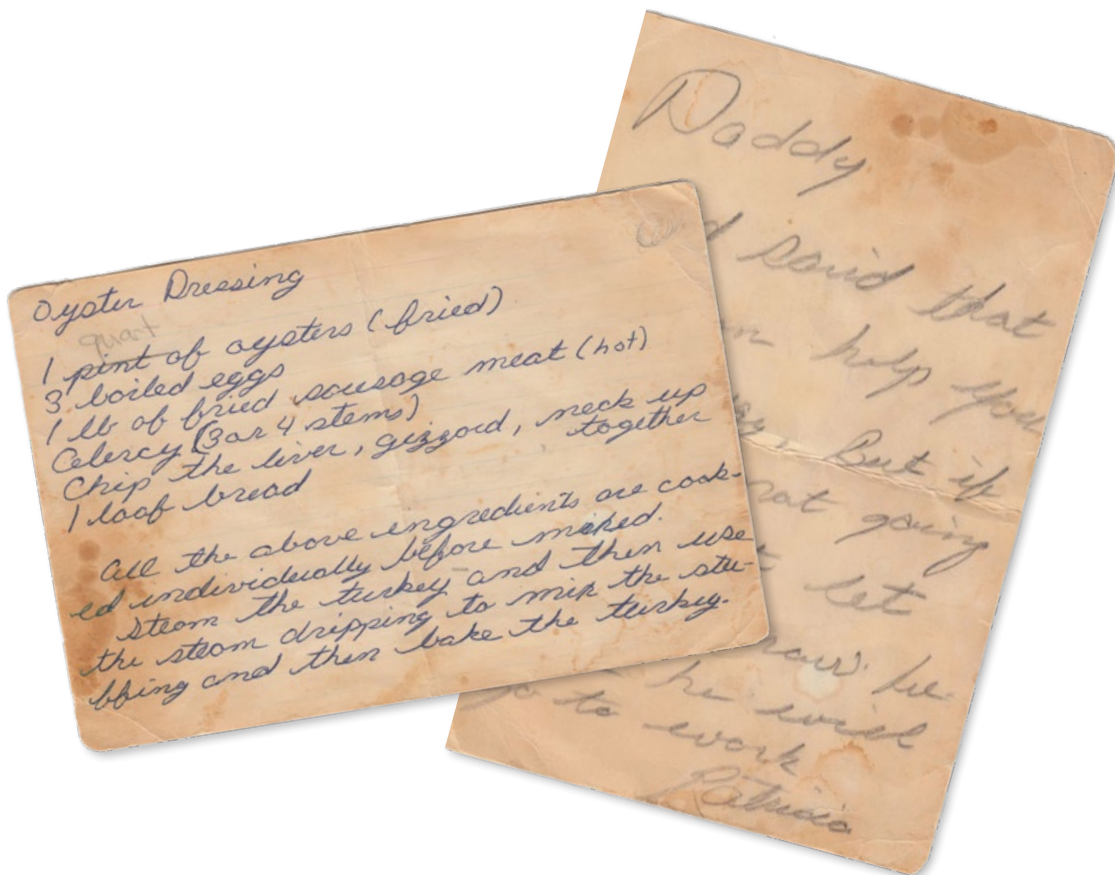 Oyster Dressing
quart
1 pint of oysters (fried)
3 boiled eggs
1 lb of fried sausage meat (hot)
Celercy (3 or 4 stems)
Chip the liver, gizzard, neck up
together
1 loaf bread
All the above ingredients are cook-
ed individually before mixed.
Steam the turkey and then use
the steam dripping to mix the stu-
ffing and then bake the turkey.
Daddy
said that
help you
But if
not going
let
he will
to work
Patricia